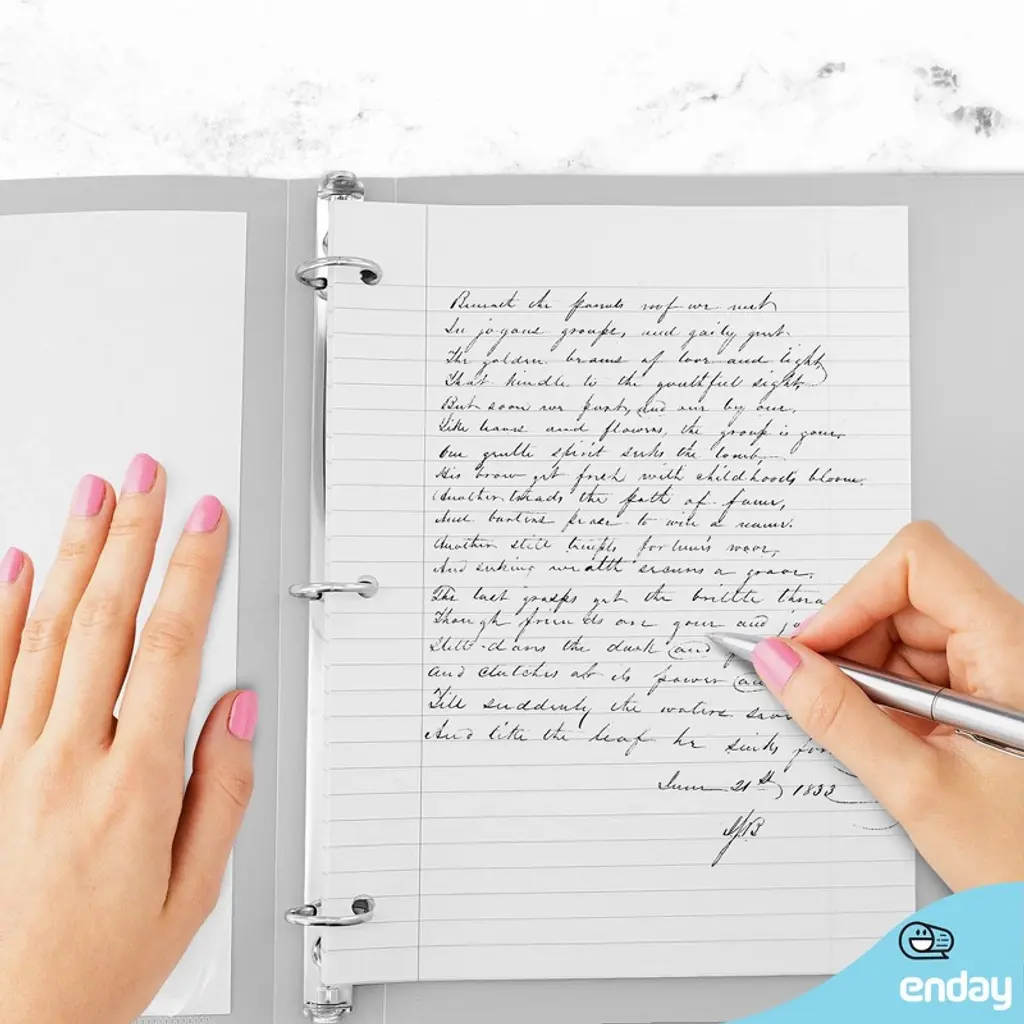 Beneath the parents roof we meet
In joyous groups, and gaily greet.
The golden beams of love and light,
That kindle to the youthful sight,
But soon we part, and one by one,
Like leaves and flowers, the group is gone.
One gentle spirit seeks the tomb
His brow yet fresh with childhoods bloom.
Another treads the path of fame,
And barters peace to win a name.
Another still tempts fortune's wave,
And seeking wealth secures a grave.
The last grasps yet the brittle
Though friends are gone and
Still dares the dark and
and clutches at its power
Till suddenly the waters
And like the leaf he sinks
June 21st, 1833
enday